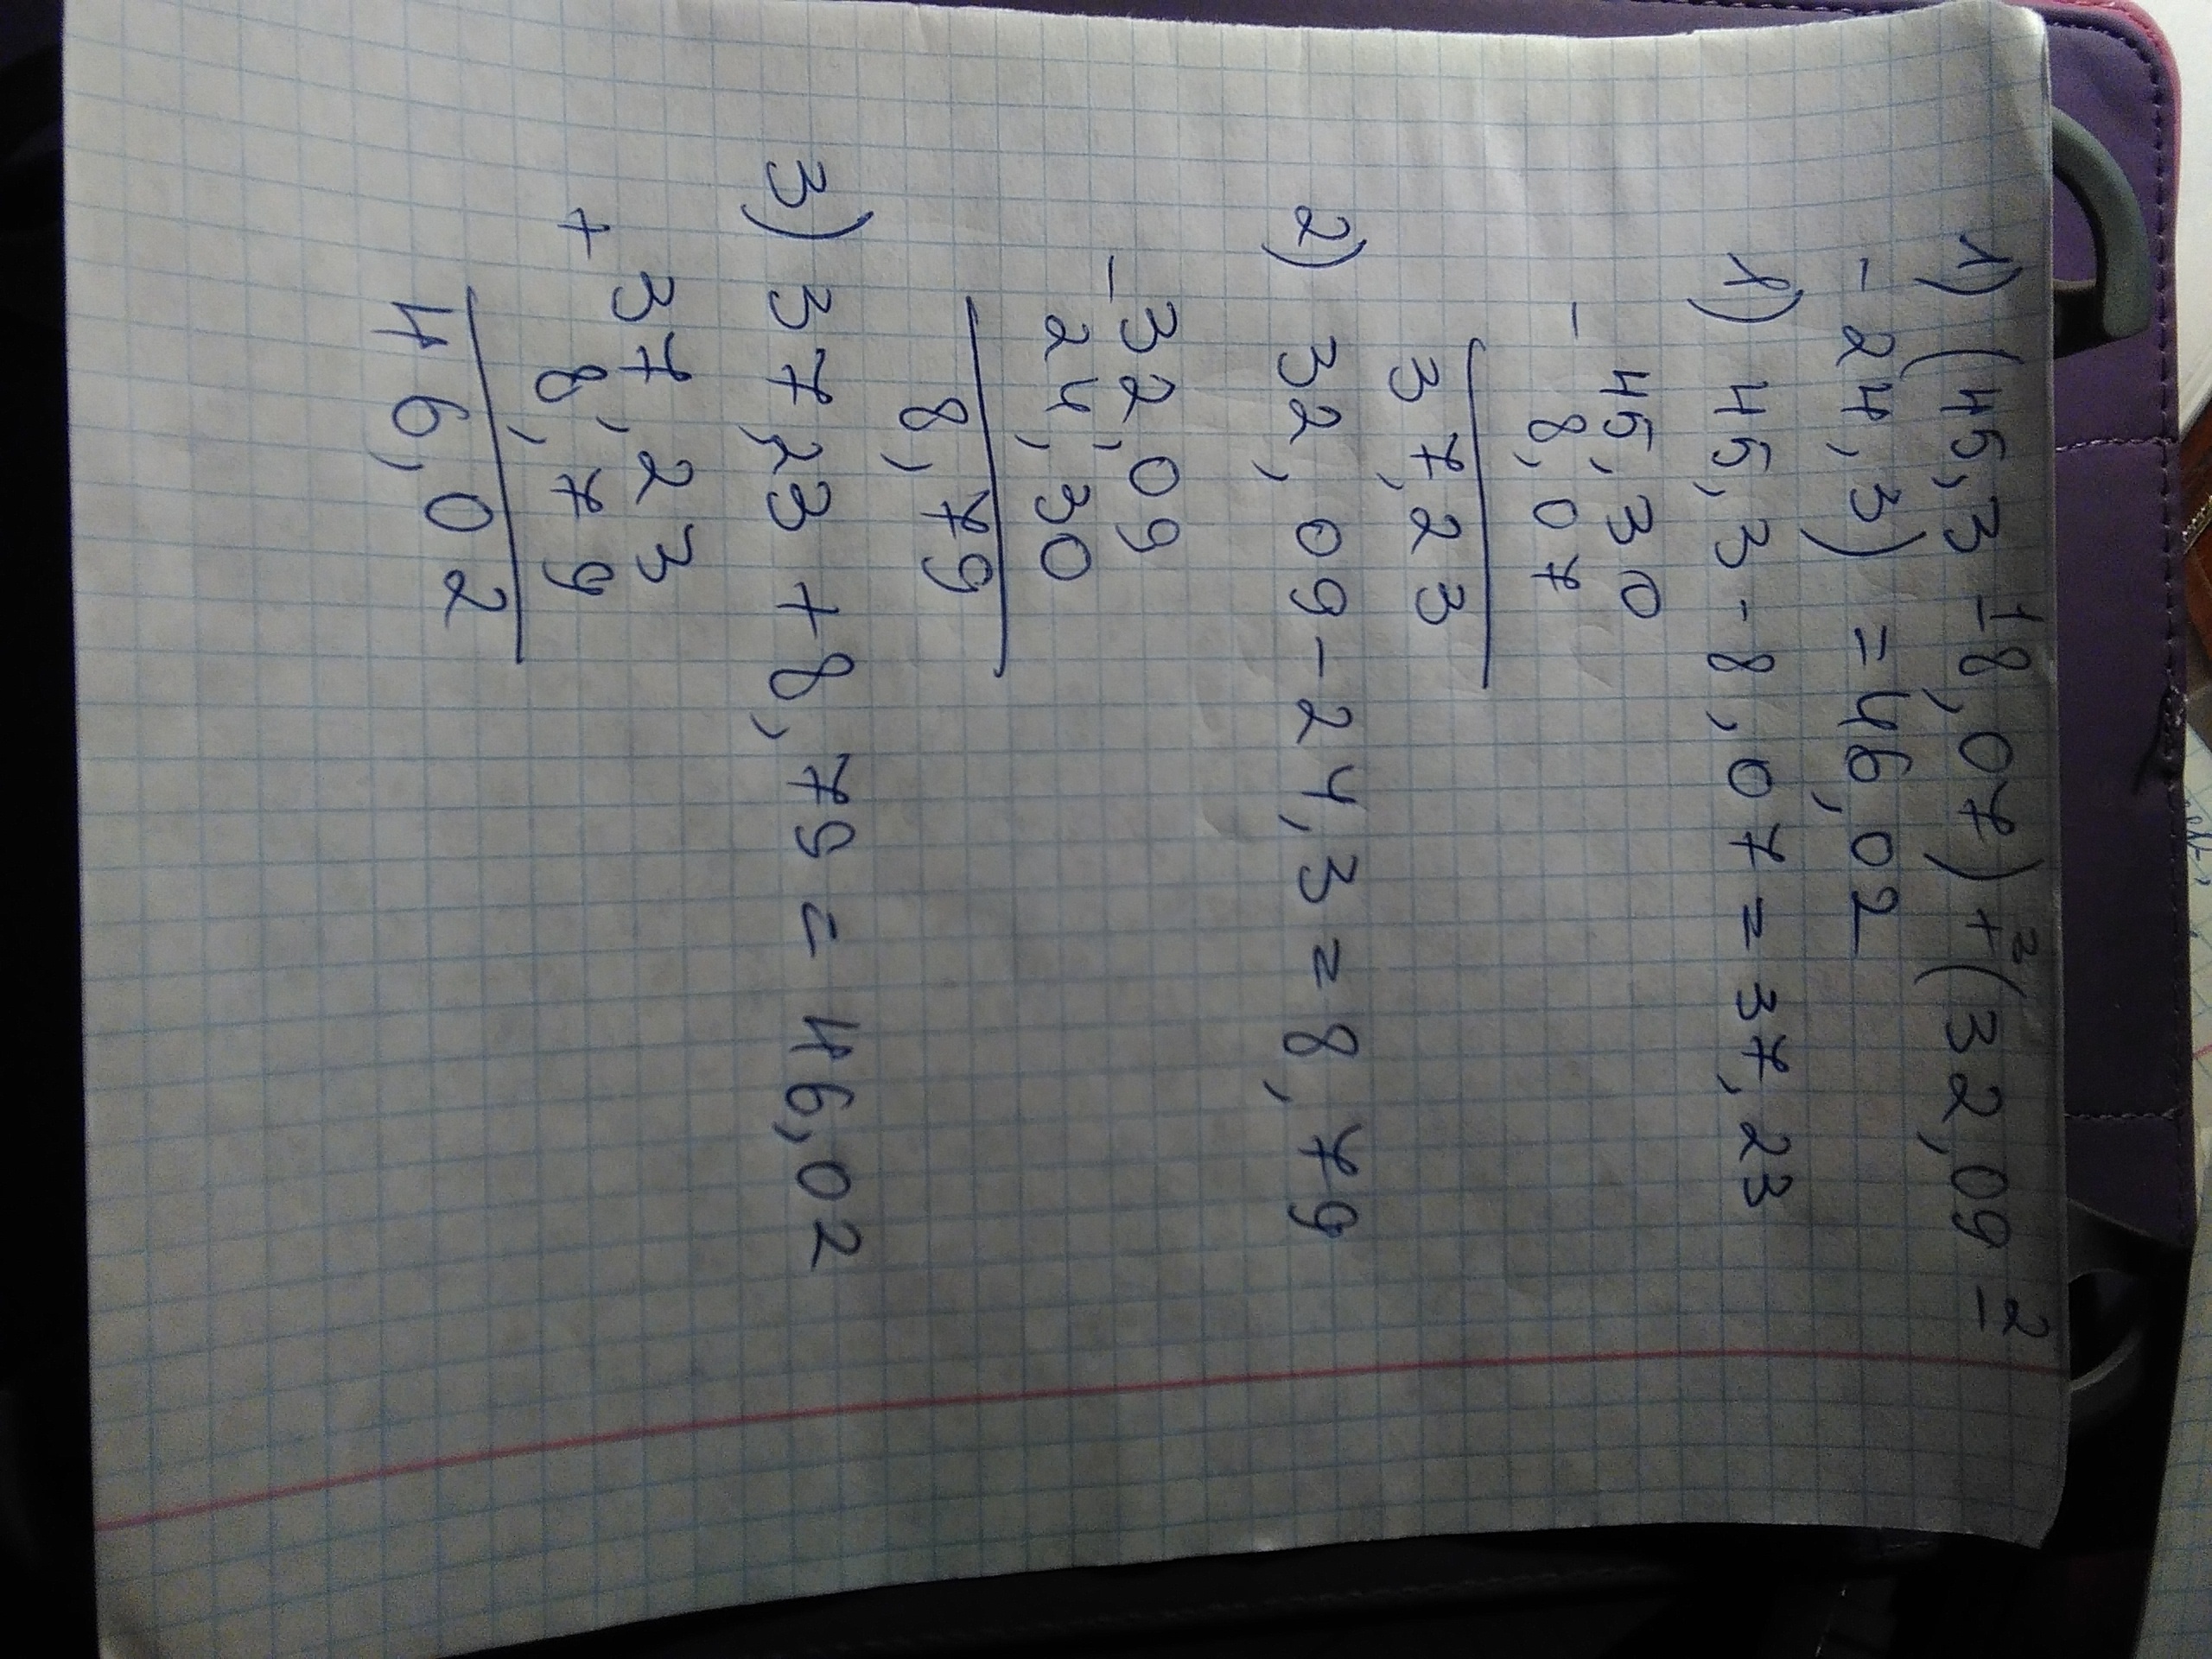 1) (45,3 - 1 8,07) + 2 (32,09 - 2
- 24,3) = 46,02
1) 45,3 - 8,07 = 37,23
- 45,30
8,07
37,23
2) 32,09 - 24,3 = 8,79
- 32,09
24,30
8,79
3) 37,23 + 8,79 = 46,02
+ 37,23
8,79
46,02